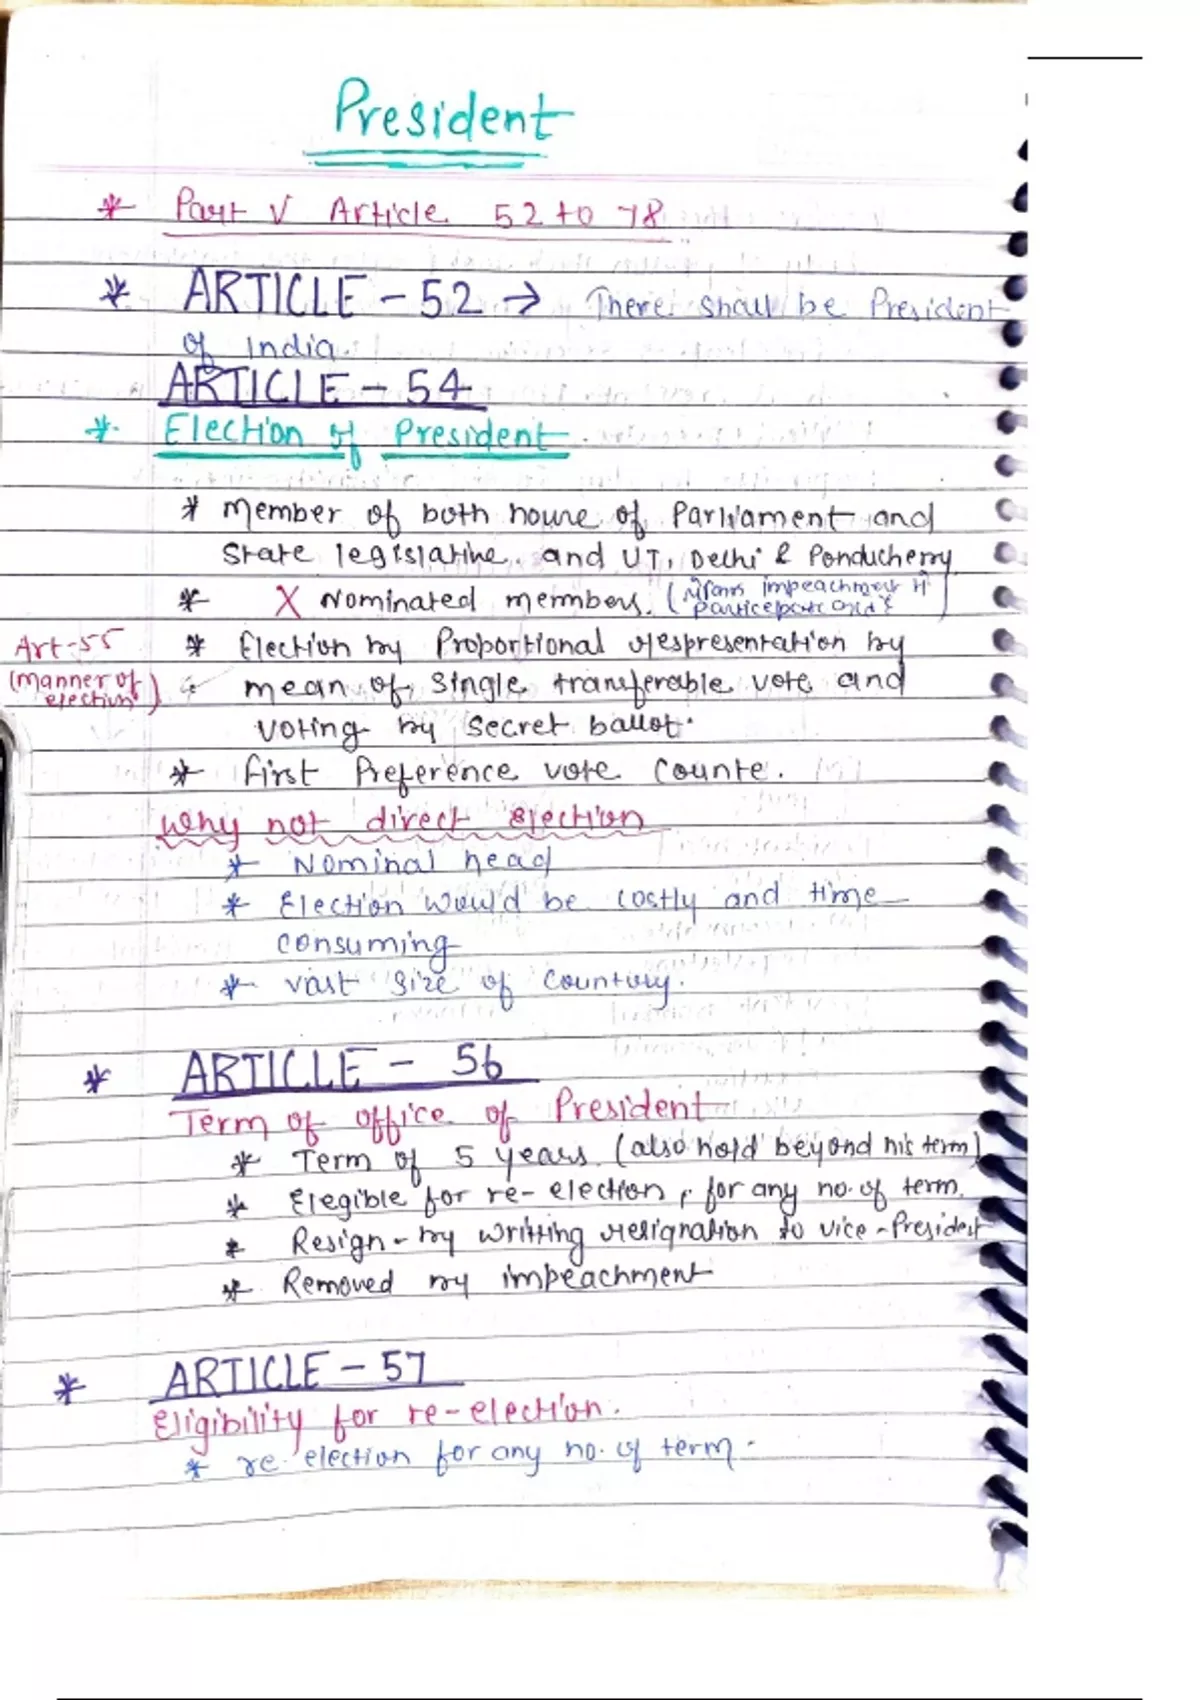 President
* Part V Article 52 to 78
* ARTICLE - 52 → There shall be President
of India.
ARTICLE - 54
* Election of President
* Member of both house of Parliament and
State legislative and UT, Delhi & Ponducherry
* X Nominated members. ( impeachment में
participate करते
Art-55 * Election by Proportional respresentation by
(manner of election) mean of single transferable vote and
voting by secret ballot.
* first Preference vote counte.
Why not direct election
* Nominal head
* Election would be costly and time
consuming
* vast size of country.
* ARTICLE - 56
Term of office of President
* Term of 5 years (also hold beyond his term)
* Elegible for re-election, for any no. of term.
* Resign - by writting resignation to vice-President
* Removed by impeachment
* ARTICLE - 57
Eligibility for re-election.
* re election for any no. of term.